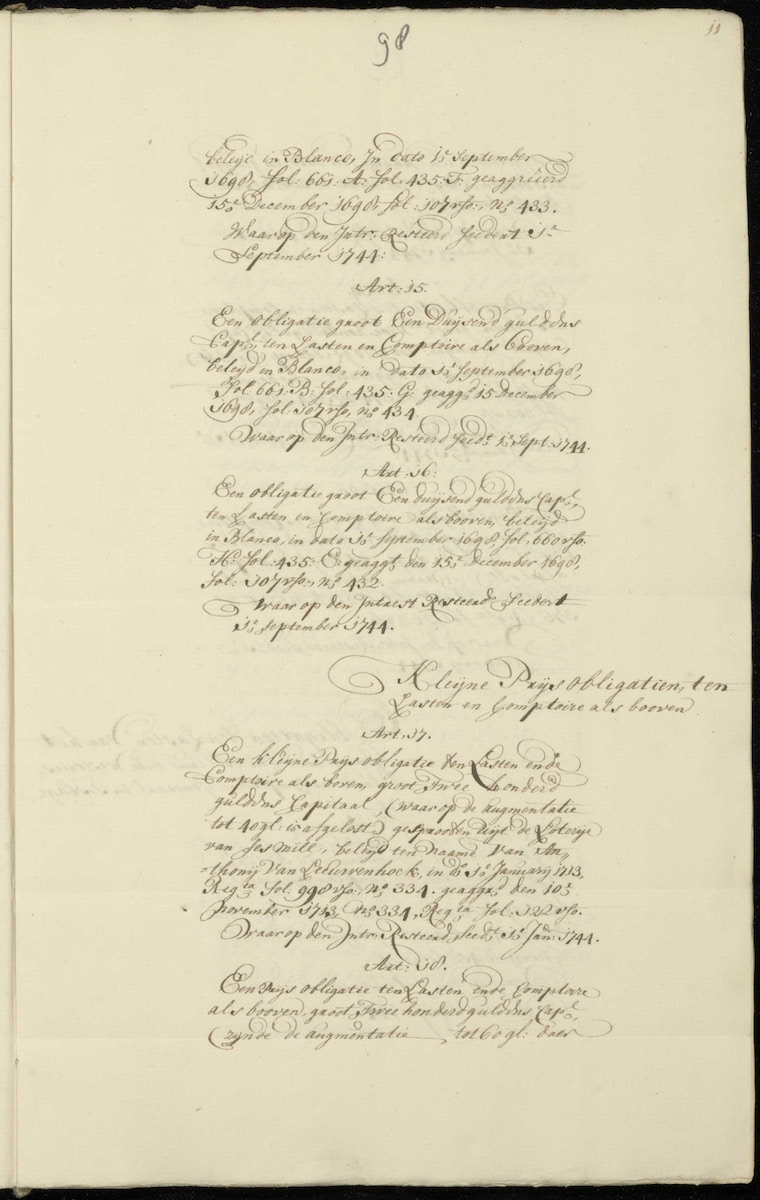 98
11
beleyt in Blanco, In dato 1e September
1698, fol: 661. A: fol. 435: F: geaggreerd
15e December 1698, fol: 107 vso., No 433.
Waar op den Intr: Resteerd seedert 1e
September 1744:
Art: 15.
Een obligatie groot Een Duijsend guldens
Capl, ten Lasten en Comptoire als booven,
beleyd in Blanco, in dato 1e September 1698,
Fol. 661. B: fol: 435: G: geaggd 15 December
1698, fol: 107 vso, No 434.
Waar op den Intr: Resteerd seedt 1e Sept: 1744.
Art: 16:
Een obligatie groot Een duijsend guldens Capl,
ten Lasten en Comptoire als booven, beleyd
in Blanco, in dato 1e September 1698, fol. 660 vso.
H: fol. 435: E: geaggt den 15e December 1698,
fol: 107 vso., No 432.
Waar op den Intrest Resteerd Seedert
1e September 1744.
Kleyne Prijs obligatien, ten
Lasten en Comptoire als booven
Art: 17.
Een kleyne Prys obligatie ten Lasten ende
Comptoire als boven, groot Twee honderd
guldens Capitaal, (waar op de augmentatie
tot 40 gl: is afgelost) gesprooten uijt de Loterije
van ses mill:, beleyd ten naame van An-
=thonij Van Leeuwenhoek, in do 1e January 1713,
Regta fol. 998 vso., No 334. geaggt den 10e
November 1713, No 334, Regta fol: 122 vso.
Waar op den Intr: Resteerd, seedt 1e Jan: 1744.
Art: 18.
Een Prijs obligatie ten Lasten ende Comptoire
als booven, groot Twee honderd guldens Capl,
(zynde de augmentatie tot 60 gl: daer